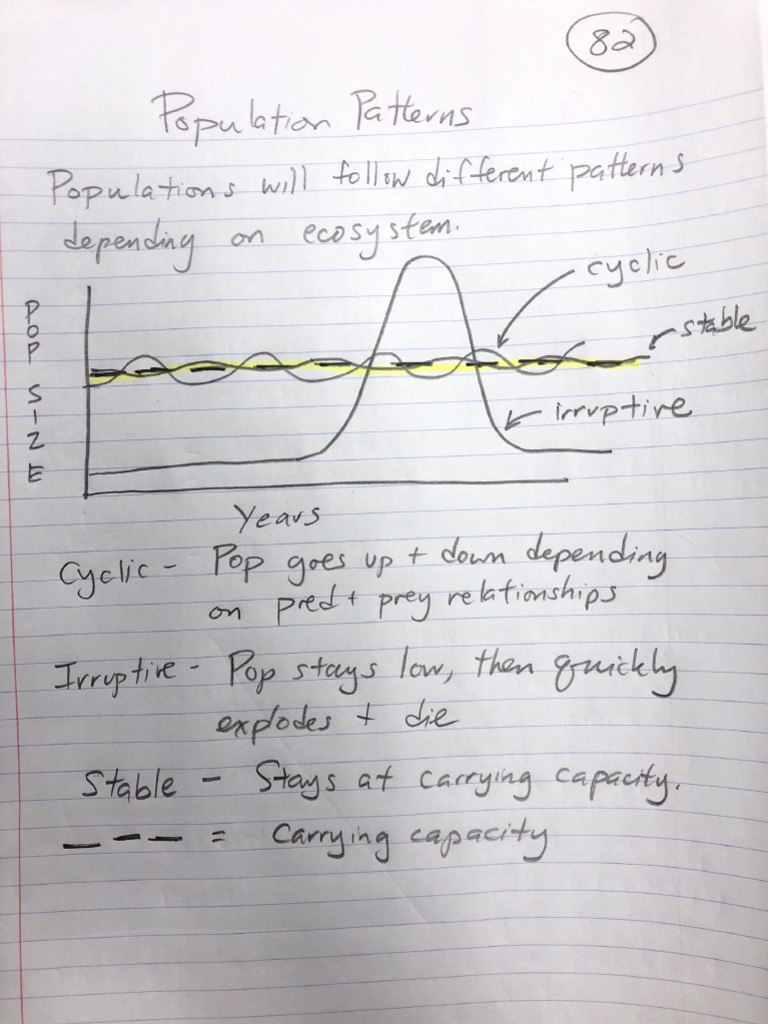 82
Population Patterns
Populations will follow different patterns
depending on ecosystem.
cyclic
stable
POP SIZE
irruptive
Years
Cyclic - Pop goes up + down depending
on pred + prey relationships
Irruptive - Pop stays low, then quickly
explodes + die
Stable - Stays at carrying capacity.
_ _ _ = Carrying capacity